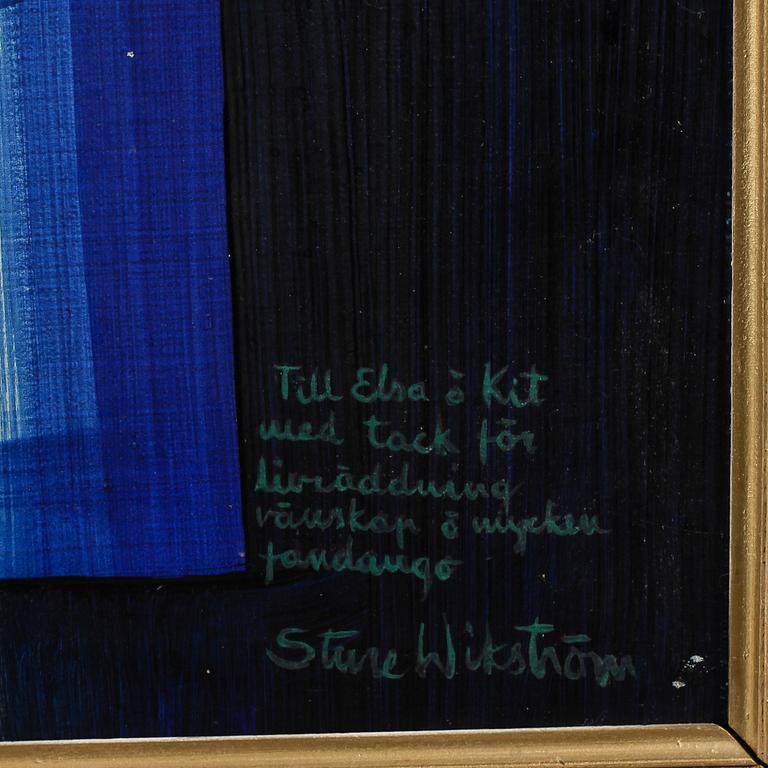 Till Elsa ö Kit
med tack för
livräddning
vänskap ö mycken
fandango
Sture Wikström